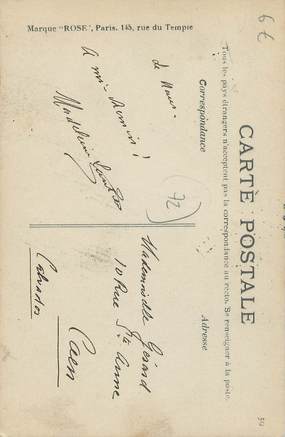 Marque "ROSE", Paris. 145, rue du Temple
CARTE POSTALE
Tous les pays étrangers n'acceptent pas la correspondance au recto. Se renseigner à la poste.
Correspondance
Adresse
de Nous.
à mis demain!
Madeleine
72
Mademoiselle Gérard
10 Rue Ste Anne
Caen
Calvados
6 €